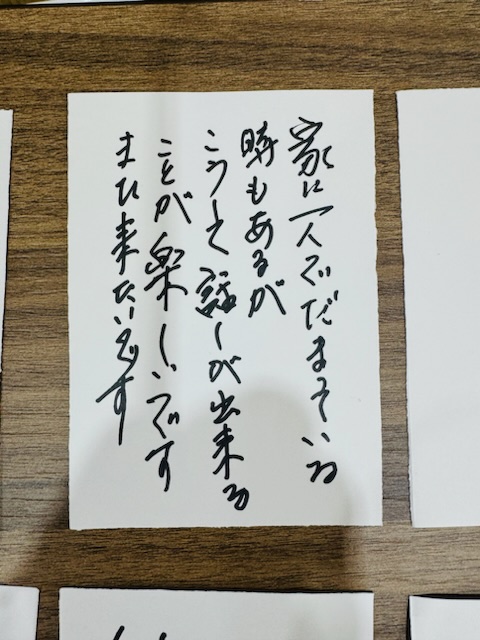 家に一人でだまっている
時もあるが
こうして話しが出来る
ことが楽しいです
また来たいです